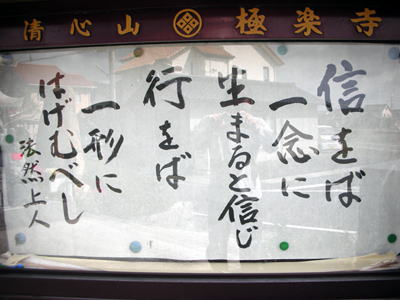 清心山 極楽寺
信をば
一念に
生まると信じ
行をば
一形に
はげむべし
法然上人